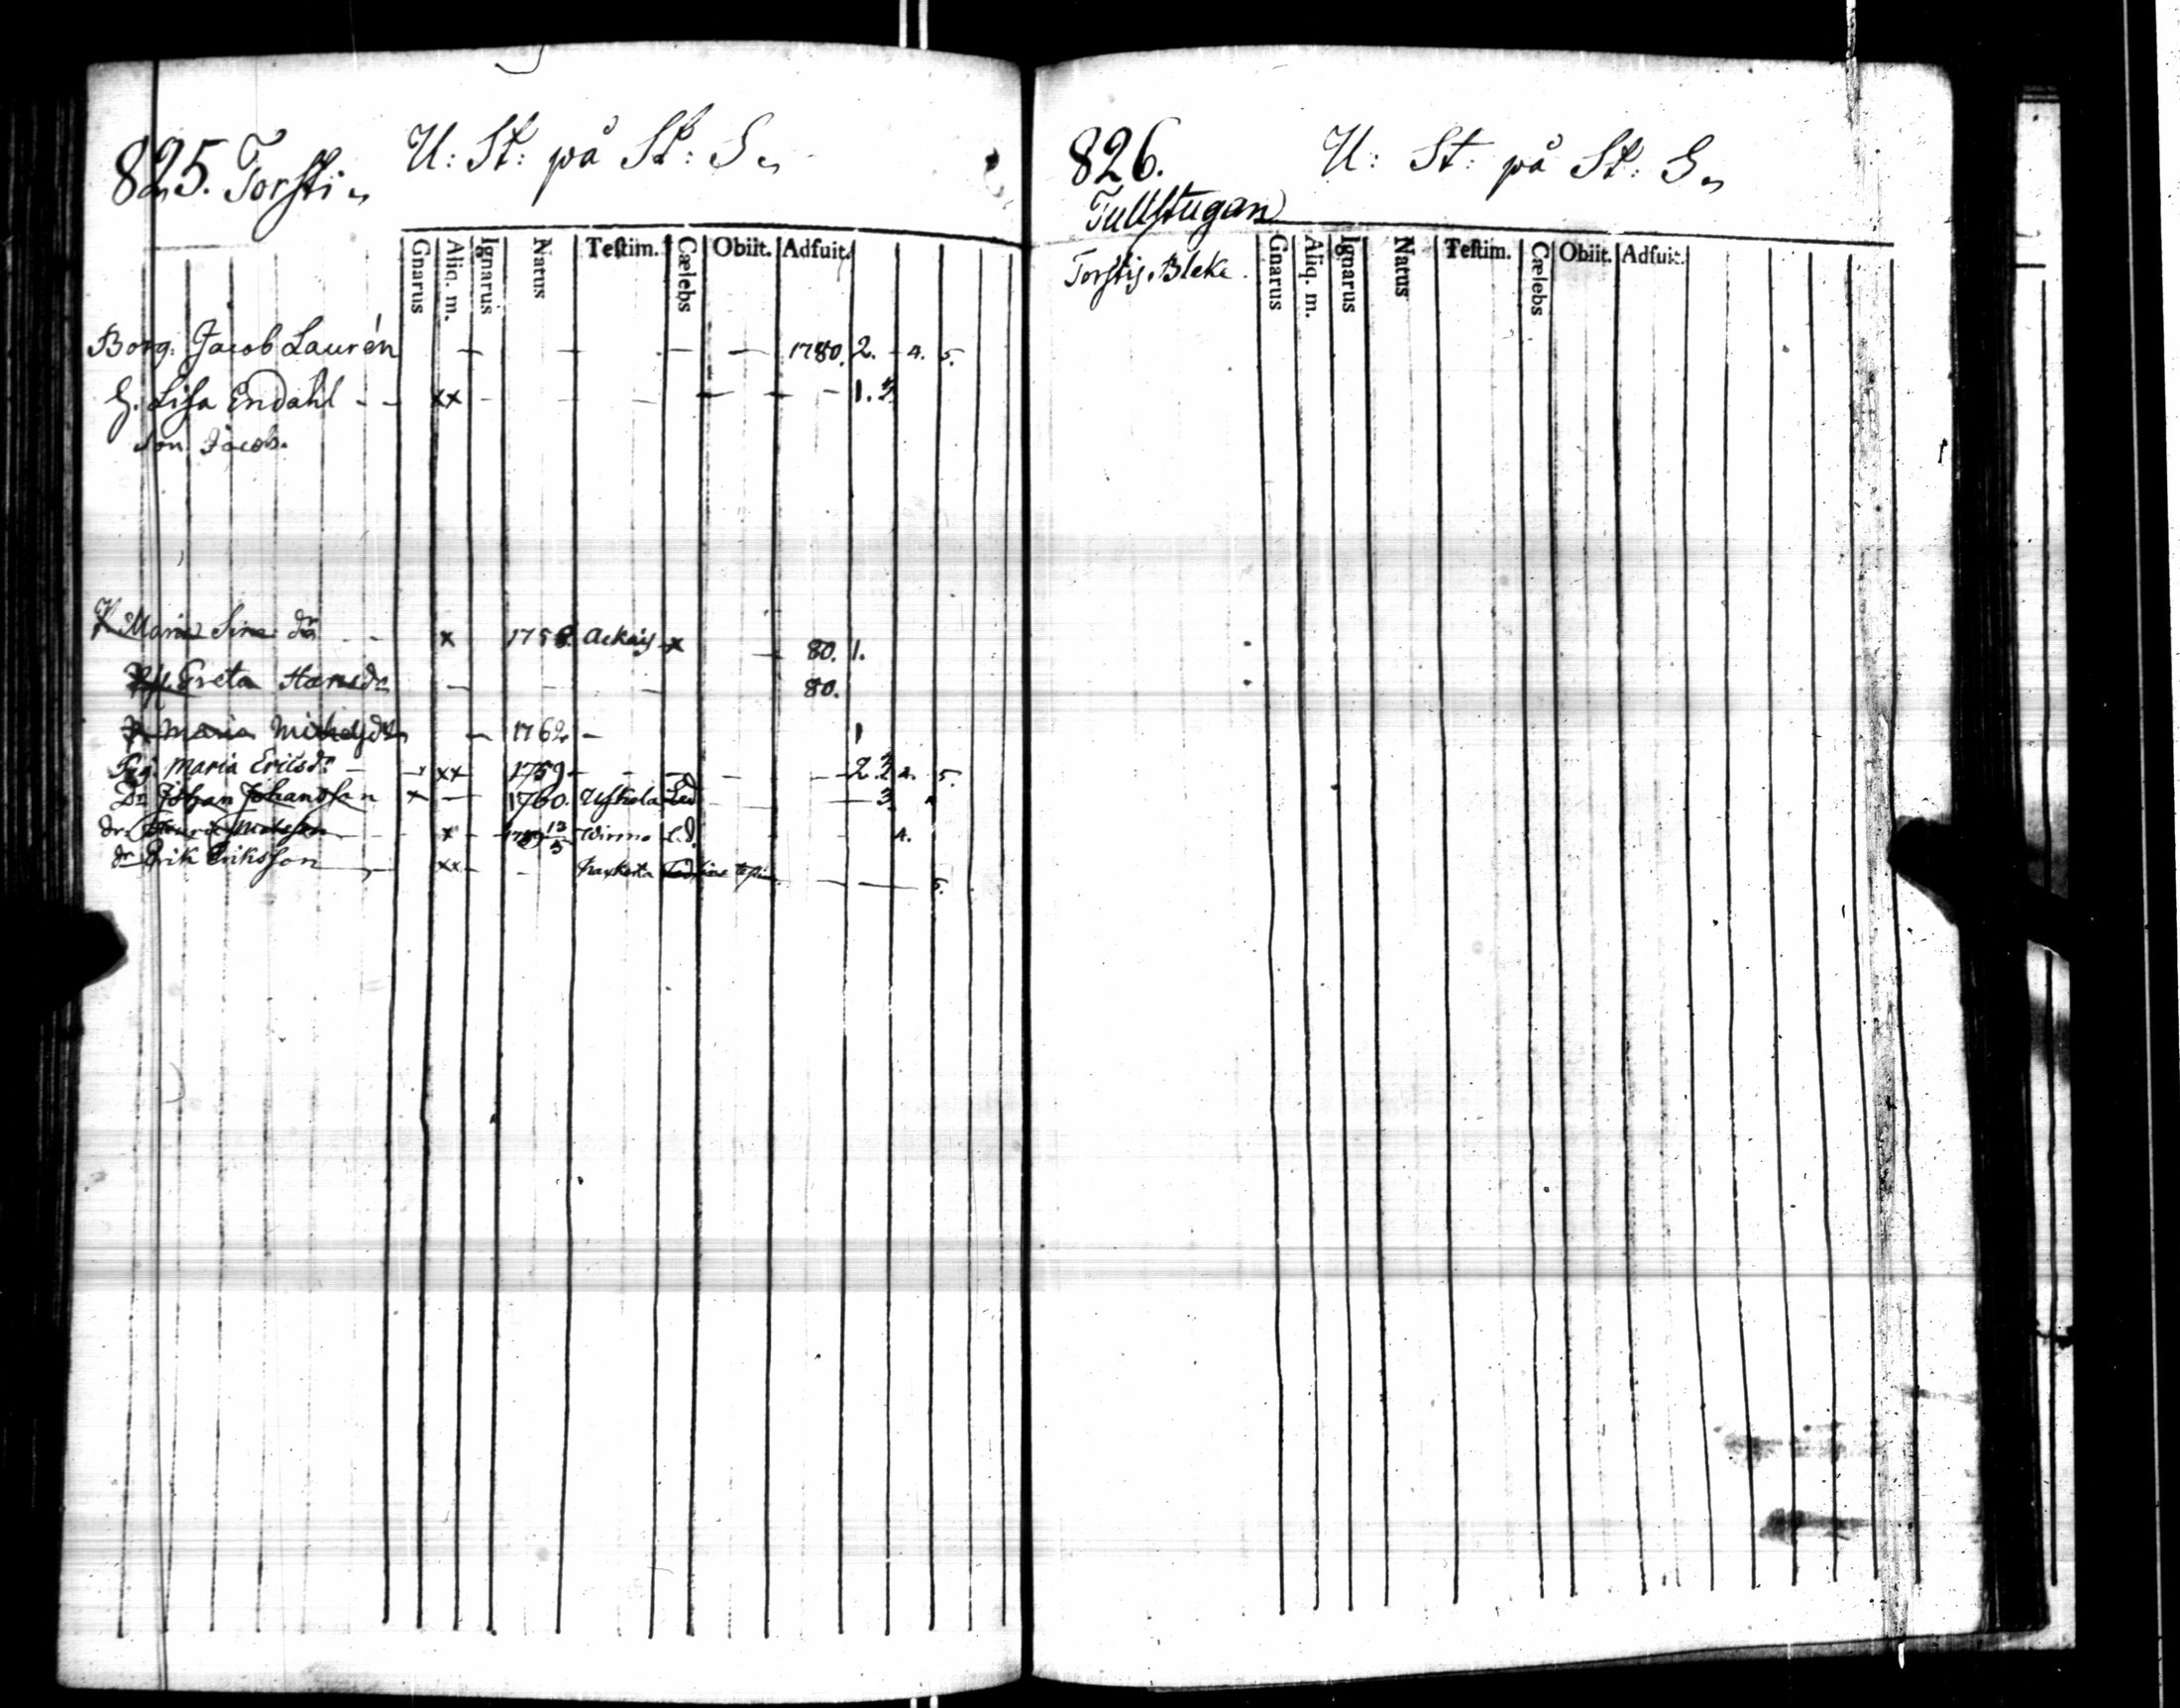 825. Torsti
U: St: på St: S
Gnarus Aliq. m. Ignarus Natus Teſtim. Cælebs Obiit. Adfuit.
Borg. Jacob Laurén — — — — 1780. 2. - 4. 5.
H. Lisa Endahl - - xx - - - — — - 1. 3.
Son Jacob.
Maria dr - - x 1758. x — 80. 1.
Greta Hansdr — - - 80.
Maria Michelsdr - 1762 - 1
Maria Ericsdr - - xx 1759 - - - — — 2. 3. 4. 5.
Dr Johan Johansson x — 1760. Uskela Led — — 3
dr Matsson - - x - 1759 13/5 Wirmo l.d. - - 4.
dr Erik Eriksson xx - - — — 5.
826.
U: St: på St: S
Tullstugan
Torstis Bleke.
Gnarus Aliq. m. Ignarus Natus Teſtim. Cælebs Obiit. Adfuit.